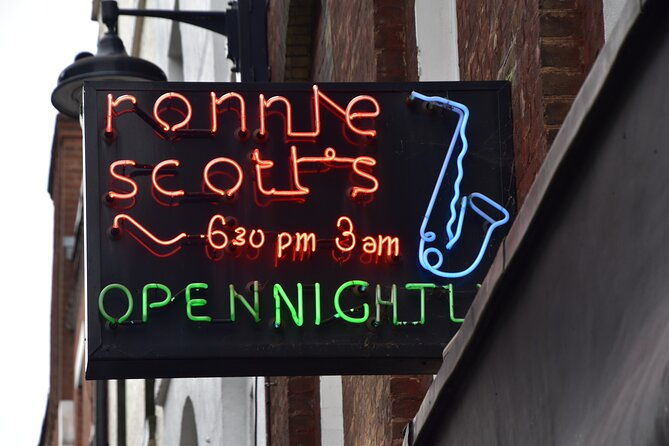 ronnie
scott's
~630 pm 3am
OPENNIGHTL